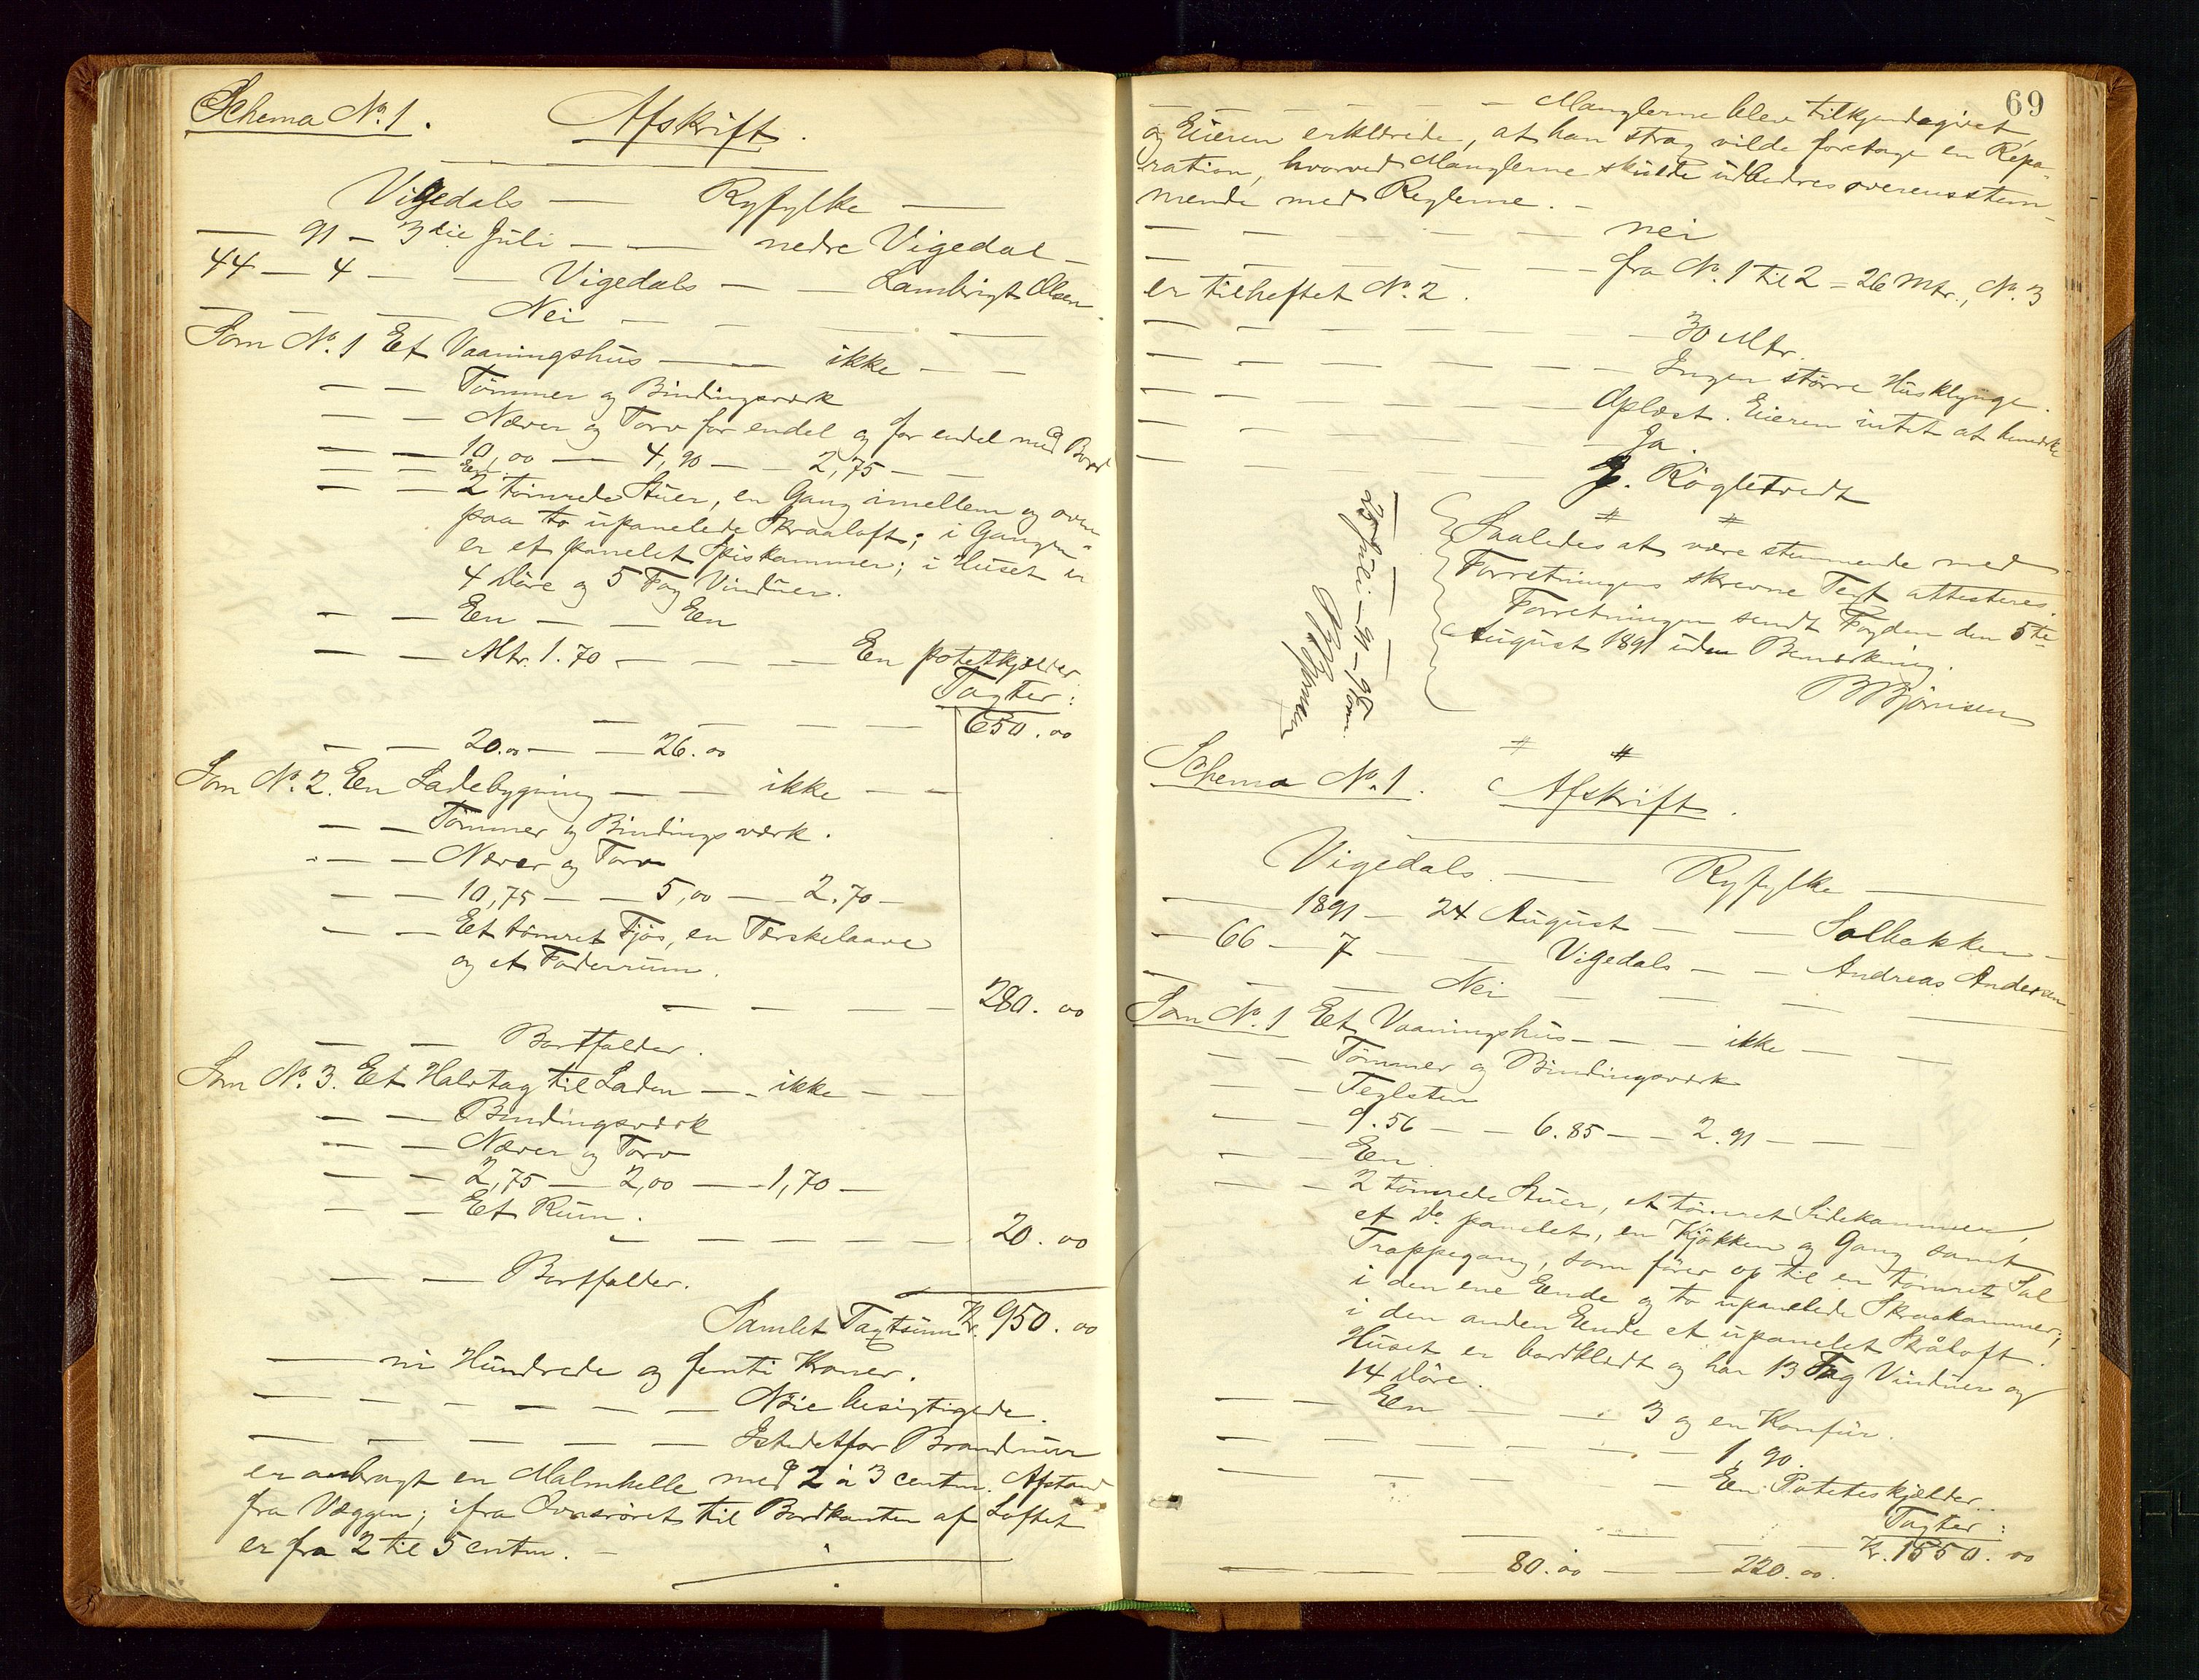 Schema No. 1. Afskrift.
Vigedals — Ryfylke —
— 91 – 3die Juli — — nedre Vigedal –
44 — 4 — — Vigedals — — Lambrigt Olsen
— — — Nei — — — — —
Som No. 1 Et Vaaningshus — — ikke — —
— — Tømmer og Bindingsværk
— — Næver og Torv for endel og for endel med Bord
— — 10,00 — 4,90 — — 2,75 — —
— — Een
— — 2 tømrede Stuer, en Gang imellem og oven
paa to upanelede Skraaloft; i Gangen
er et panelet Spiskammer; i Huset er
4 Døre og 5 Fag Vinduer.
— — Een — — Een
— — Mtr. 1.70 — — — — En potetkjelder
Taxter:
— — — — 650.00
— — 20.00 — — 26.00
Som No. 2. Een Ladebygning — — ikke — —
— — Tømmer og Bindingsværk.
— — Næver og Torv
— — 10,75 — — 5,00 — 2.70 —
— — Et tømret Fjøs, en Tærskelaave
og et Foderrum.
— — — — 280.00
— — Bortfalder.
Som No. 3. Et Halvtag til Laden — — ikke — —
— — Bindingsværk
— — Næver og Torv
— — 2,75 — 2,00 — — 1,70 —
— — Et Rum.
— — — — — 20.00
— — Bortfalder.
Samlet Taxtsum Kr. 950.00
— ni Hundrede og femti Kroner.
— — — — — — — Nøie besigtigede.
— — — — — — — Istedetfor Brandmur
er anbragt en Malmhelle med 2 à 3 centm. Afstand
fra Væggen; ifra Ovnsrøret til Bordkanten af Loftet
er fra 2 til 5 centm. —
69
— — — — — Manglerne blev tilkjendegivet,
og Eieren erklærede, at han strax vilde foretage en Repa-
ration, hvorved Manglerne skulde udbedres overensstem-
mende med Reglerne. —
— — — — — — nei
— — — — — — fra No. 1 til 2 = 26 Mtr., No. 3
er tilheftet No. 2.
— — — — — — 30 Mtr.
— — — — — — Ingen større Husklynge.
— — — — — — Oplæst. Eieren intet at bemærke
— — — — — — Ja.
— — — — — — J. Røgletvedt
# #
Saaledes at være stemmende med
Forretningens skrevne Text attesteres.
Forretningen sendt Fogden den 5te
August 1891 uden Bemærkning.
BBjørnsen
25 Juli – 91 –
# #
Schema No. 1. Afskrift.
Vigedals — Ryfylke —
— 1891 — 24 August — — Solbakken —
— 66 — 7 — — Vigedals — — Andreas Andersen
— — — Nei — — — — —
Som No. 1 Et Vaaningshus — — — ikke — —
— — Tømmer og Bindingsværk
— Teglsten
— — 9.56 — — 6.85 — — 2.91 — — —
— — Een.
— — 2 tømrede Stuer, et tømret Sidekammer,
et Do. panelet, en Kjøkken og Gang samt
Trappegang, som fører op til en tømret Sal
i den ene Ende og to upanelede Skraakammer;
i den anden Ende et upanelet Skråloft.
Huset er bordklædt og har 13 Fag Vinduer og
14 Døre.
— — Een — — 3 og en Komfur.
— — — — — — 1,90.
— — — — — — Een Poteteskjelder.
Taxter:
— — — — Kr. 1550.00
— — — 80.00 — — 220.00.